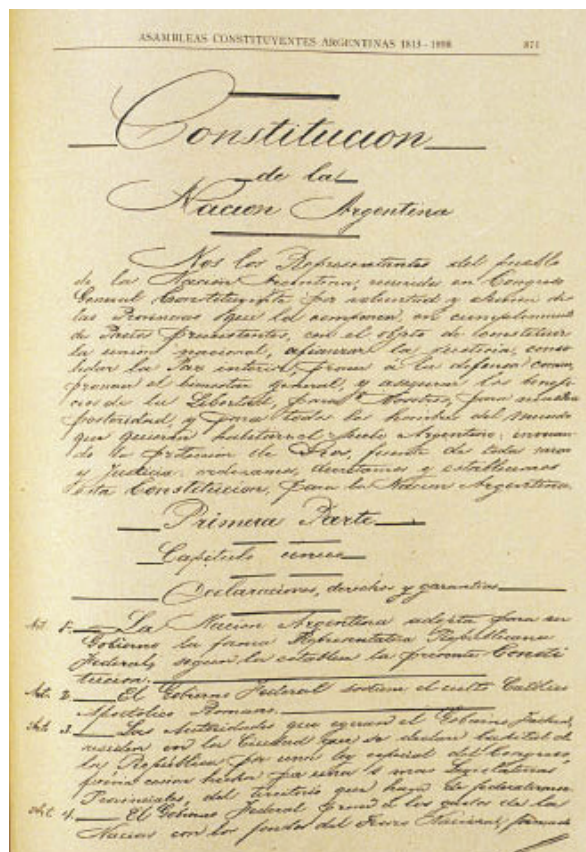 ASAMBLEAS CONSTITUYENTES ARGENTINAS 1813-1898 871
Constitucion
de la
Nacion Argentina
Nos los Representantes del pueblo
de la Nacion Argentina, reunidos en Congreso
General Constituyente por voluntad y eleccion de
las Provincias que la componen, en cumplimiento
de Pactos Preexistentes, con el objeto de Constituir
la union nacional, afianzar la justicia, conso
lidar la Paz interior, proveer a la defensa comun,
promover el bienestar general, y asegurar los benefi
cios de la Libertad, para Nosotros, para nuestra
posteridad, y para todos los hombres del mundo
que quieran habitar el suelo Argentino: invocan
do la proteccion de Dios, fuente de toda razon
y Justicia: ordenamos, decretamos y establecemos
esta Constitucion, para la Nacion Argentina.
Primera Parte
Capitulo unico
Declaraciones, derechos y garantias
Art. 1.° La Nacion Argentina adopta para su
Gobierno la forma Representativa Republicana
Federal, segun la establece la presente Consti
tucion.
Art. 2. El Gobierno Federal sostiene el culto Católico
Apostolico Romano.
Art. 3. Las Autoridades que ejercen el Gobierno Federal,
residen en la Ciudad que se declare Capital de
la Republica por una ley especial del Congreso,
previa cesion hecha por una o mas Legislaturas
Provinciales, del territorio que haya de federalizarse.
Art. 4. El Gobierno Federal provee a los gastos de la
Nacion con los fondos del Tesoro Nacional, formado